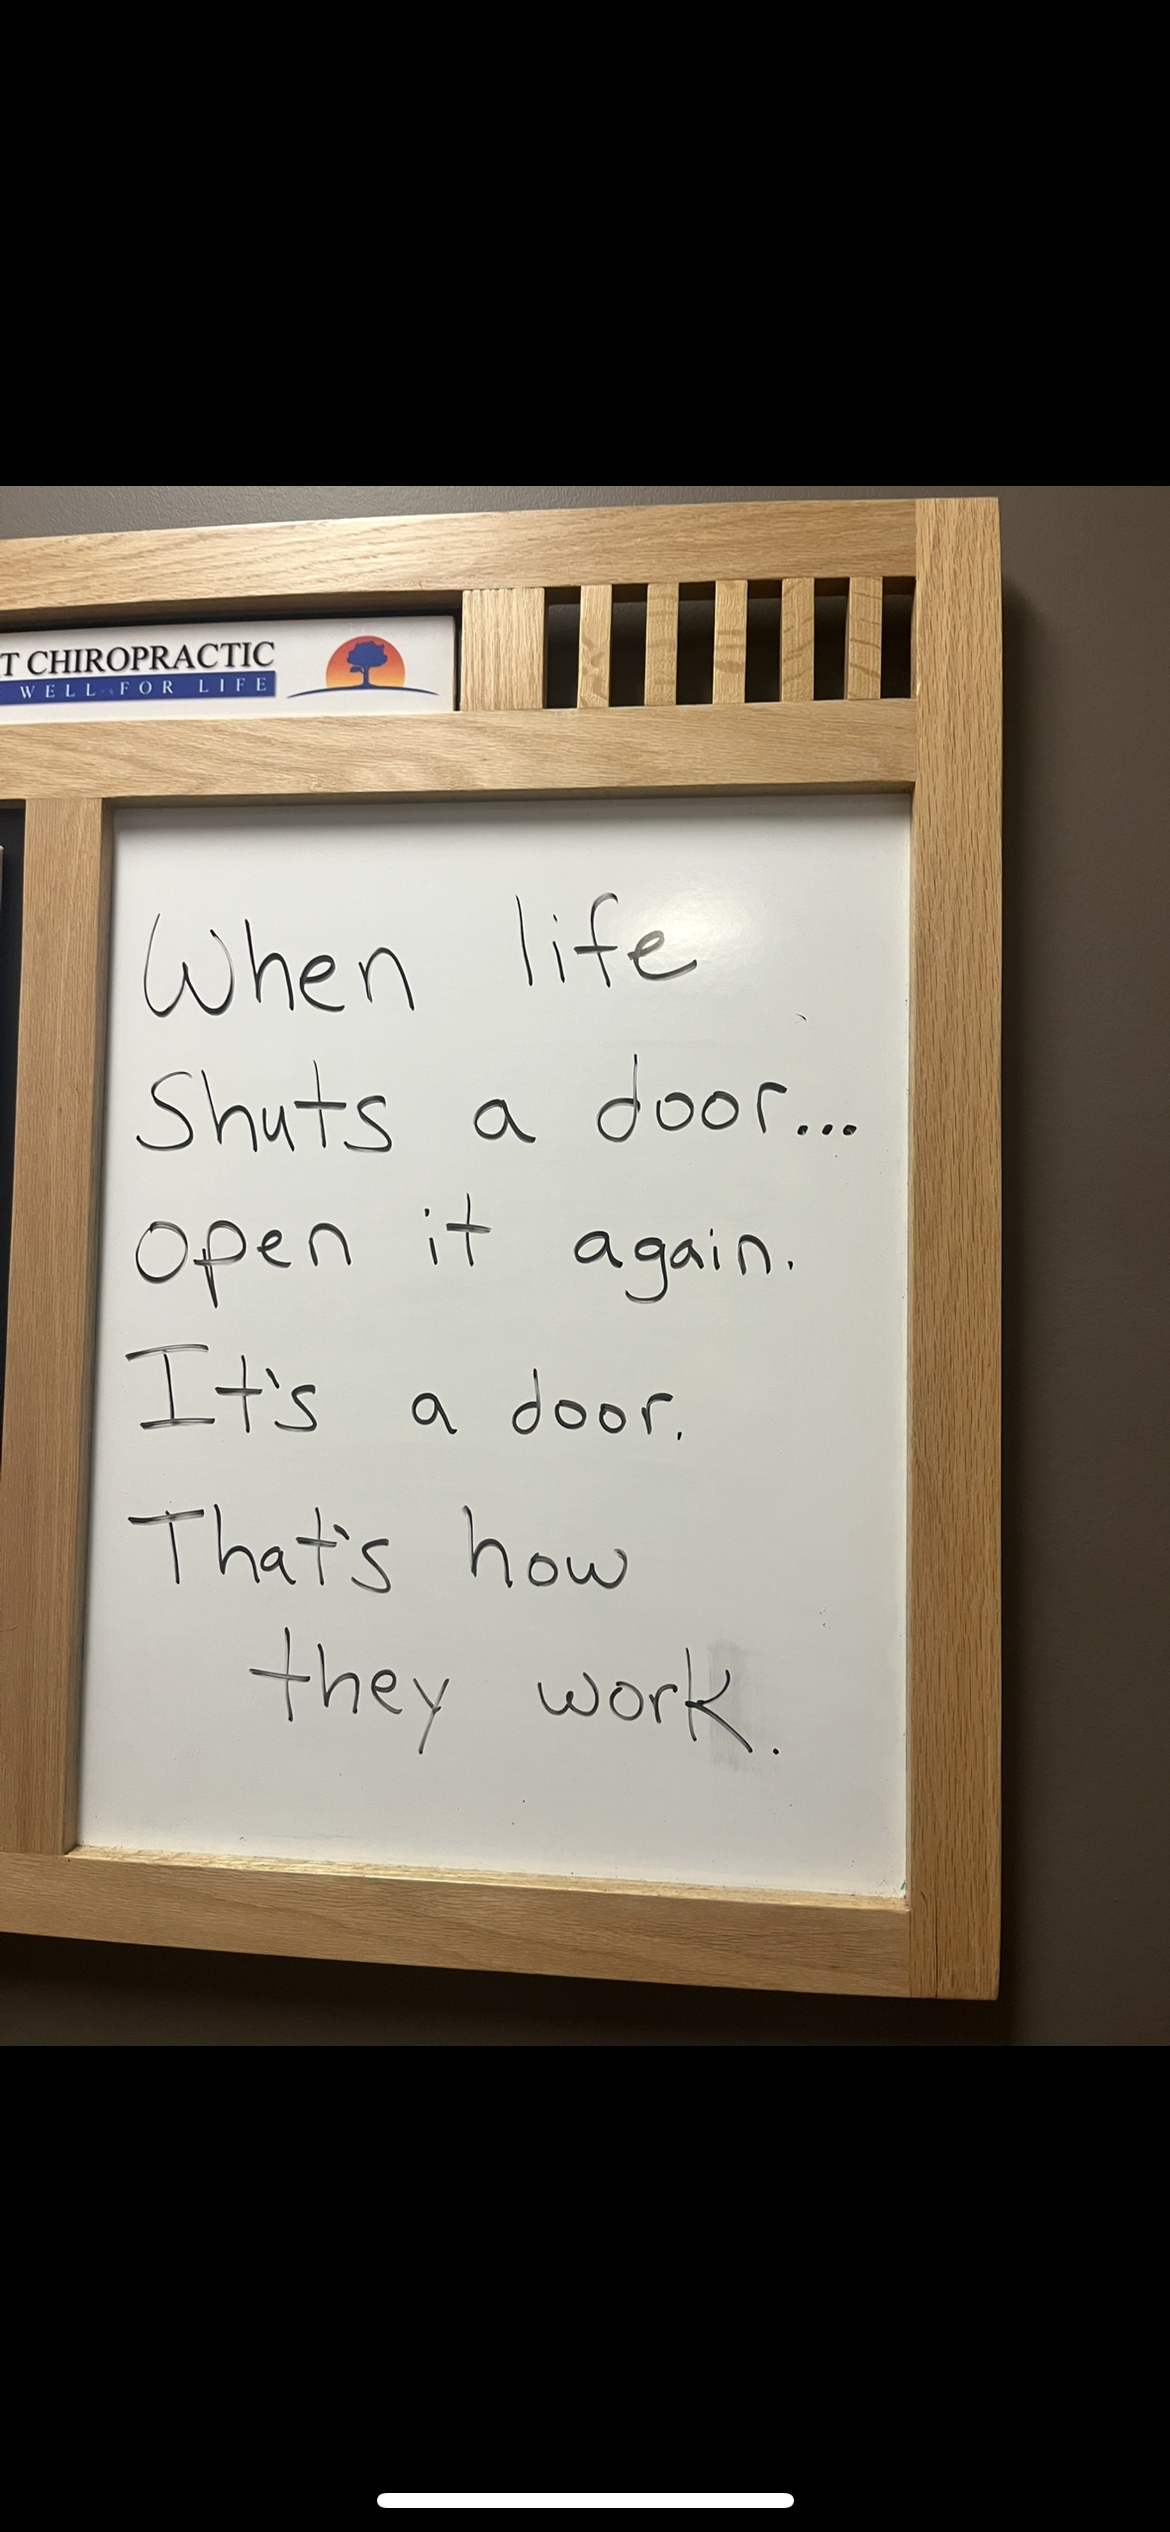 T CHIROPRACTIC
WELL FOR LIFE
When life
Shuts a door...
open it again.
It's a door.
That's how
they work.